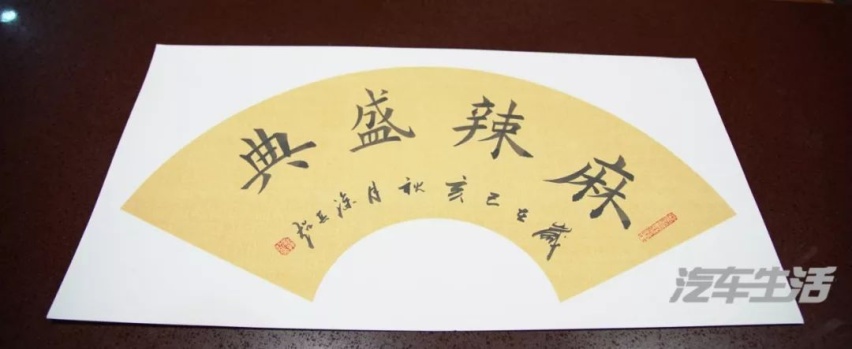 麻辣盛典
岁在己亥秋月
汽车生活